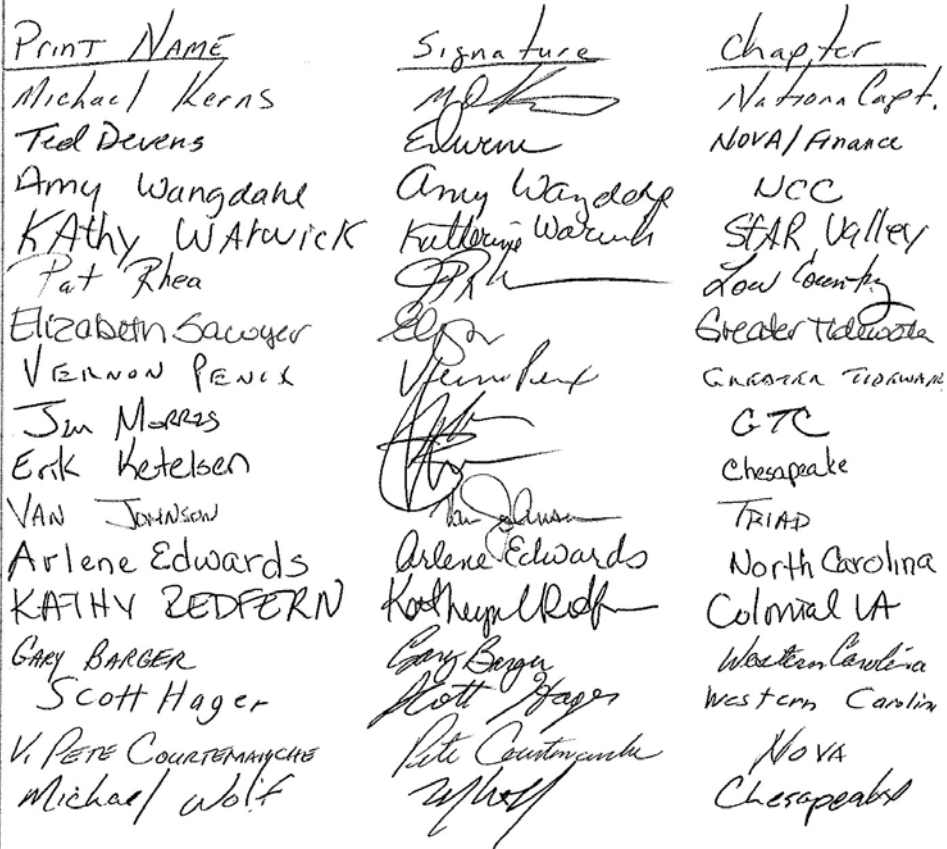 Print Name Signature Chapter
Michael Kerns Nationa Capt.
Ted Devens NOVA/Finance
Amy Wangdahl Amy Wangdahl NCC
KAthy WArwick Katherine Warwick StAR Valley
Pat Rhea Low Country
Elizabeth Sawyer Greater Tidewate
VERNON PENIX Vernon Penix GREATER TIDEWATE
Jim Morris GTC
Erik Ketelsen Chesapeake
VAN JOHNSON Van Johnson TRIAD
Arlene Edwards Arlene Edwards North Carolina
KATHY REDFERN Colonial VA
GARY BARGER Gary Barger Western Carolina
Scott Hager Scott Hager Western Carolin
V. PETE COURTEMANCHE Pete Courtemanche NOVA
Michael Wolf Chesapeake